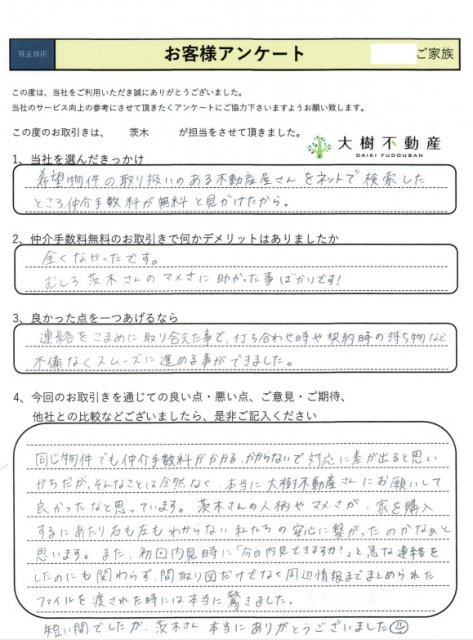 買主様用
お客様アンケート
ご家族
この度は、当社をご利用いただき誠にありがとうございました。
当社のサービス向上の参考にさせて頂きたくアンケートにご協力下さいますようお願い致します。
この度のお取引きは、 茨木 が担当をさせて頂きました。
大樹不動産
DAIKI FUDOUSAN
1、当社を選んだきっかけ
希望物件の取り扱いのある不動産屋さんをネットで検索した
ところ、仲介手数料が無料と見かけたから。
2、仲介手数料無料のお取引きで何かデメリットはありましたか
全くなかったです。
むしろ茨木さんのマメさに助かった事ばかりです!
3、良かった点を一つあげるなら
連絡をこまめに取り合えた事で、打ち合わせ時や契約時の持ち物など
不備なくスムーズに進める事ができました。
4、今回のお取引きを通じての良い点・悪い点、ご意見・ご期待、
他社との比較などございましたら、是非ご記入ください
同じ物件でも仲介手数料がかかる、かからないで対応に差が出ると思い
がちだが、そんなことは全然なく、本当に大樹不動産さんにお願いして
良かったなと思っています。茨木さんの人柄やマメさが、家を購入
するにあたり右も左もわからない私たちの安心に繋がったのかなぁと
思います。また、初回内見時に「今日内見できますか?」と急な連絡を
したのにも関わらず、間取り図だけでなく周辺情報までまとめられた
ファイルを渡された時には本当に驚きました。
短い間でしたが、茨木さん本当にありがとうございました